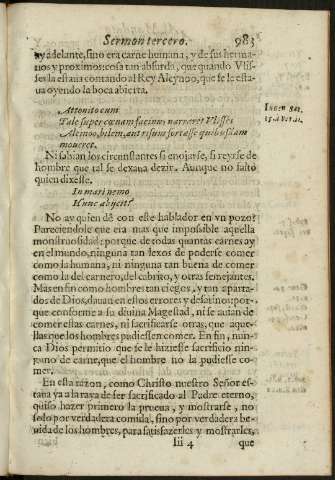 Sermon tercero. 983
ay adelante, sino era carne humana, y de sus herma-
nos y proximos: cosa tan absurda, que quando Vlis-
ses la estaua contando al Rey Alcynoo, que se le esta-
ua oyendo la boca abierta.
Attonito cum
Tale super cœnam facinus narraret Vlisses
Alcinoo, bilem, aut risum fortasse quibusdam
moueret.
Iuuen sat.
15. à vers.
Ni sabian los circunstantes si enojarse, si reyrse de
hombre que tal se dexaua dezir. Aunque no faltò
quien dixesse.
In mari nemo
Hunc abijcit?
No ay quien dè con este hablador en vn pozo?
Pareciendole que era mas que impossible aquella
monstruosidad: porque de todas quantas carnes ay
en el mundo, ninguna tan lexos de poderse comer
como la humana, ni ninguna tan buena de comer
como la del carnero, del cabrito, y otras semejantes.
Mas en fin como hombres tan ciegos, y tan aparta-
dos de Dios, dauan en estos errores y desatinos: por-
que conforme a su diuina Magestad, ni se auian de
comer essas carnes, ni sacrificarse otras, que aque-
llas que los hombres pudiessen comer. En fin, nun-
ca Dios permitio que se le hiziesse sacrificio nin-
guno de carne, que el hombre no la pudiesse co-
mer.
En esta razon, como Christo nuestro Señor es-
taua ya a la raya de ser sacrificado al Padre eterno,
quiso hazer primero la prueua, y mostrarse, no
solo por verdadera comida, sino por verdadera be-
uida de los hombres, para satisfazerles y mostrarles,
Iii 4 que